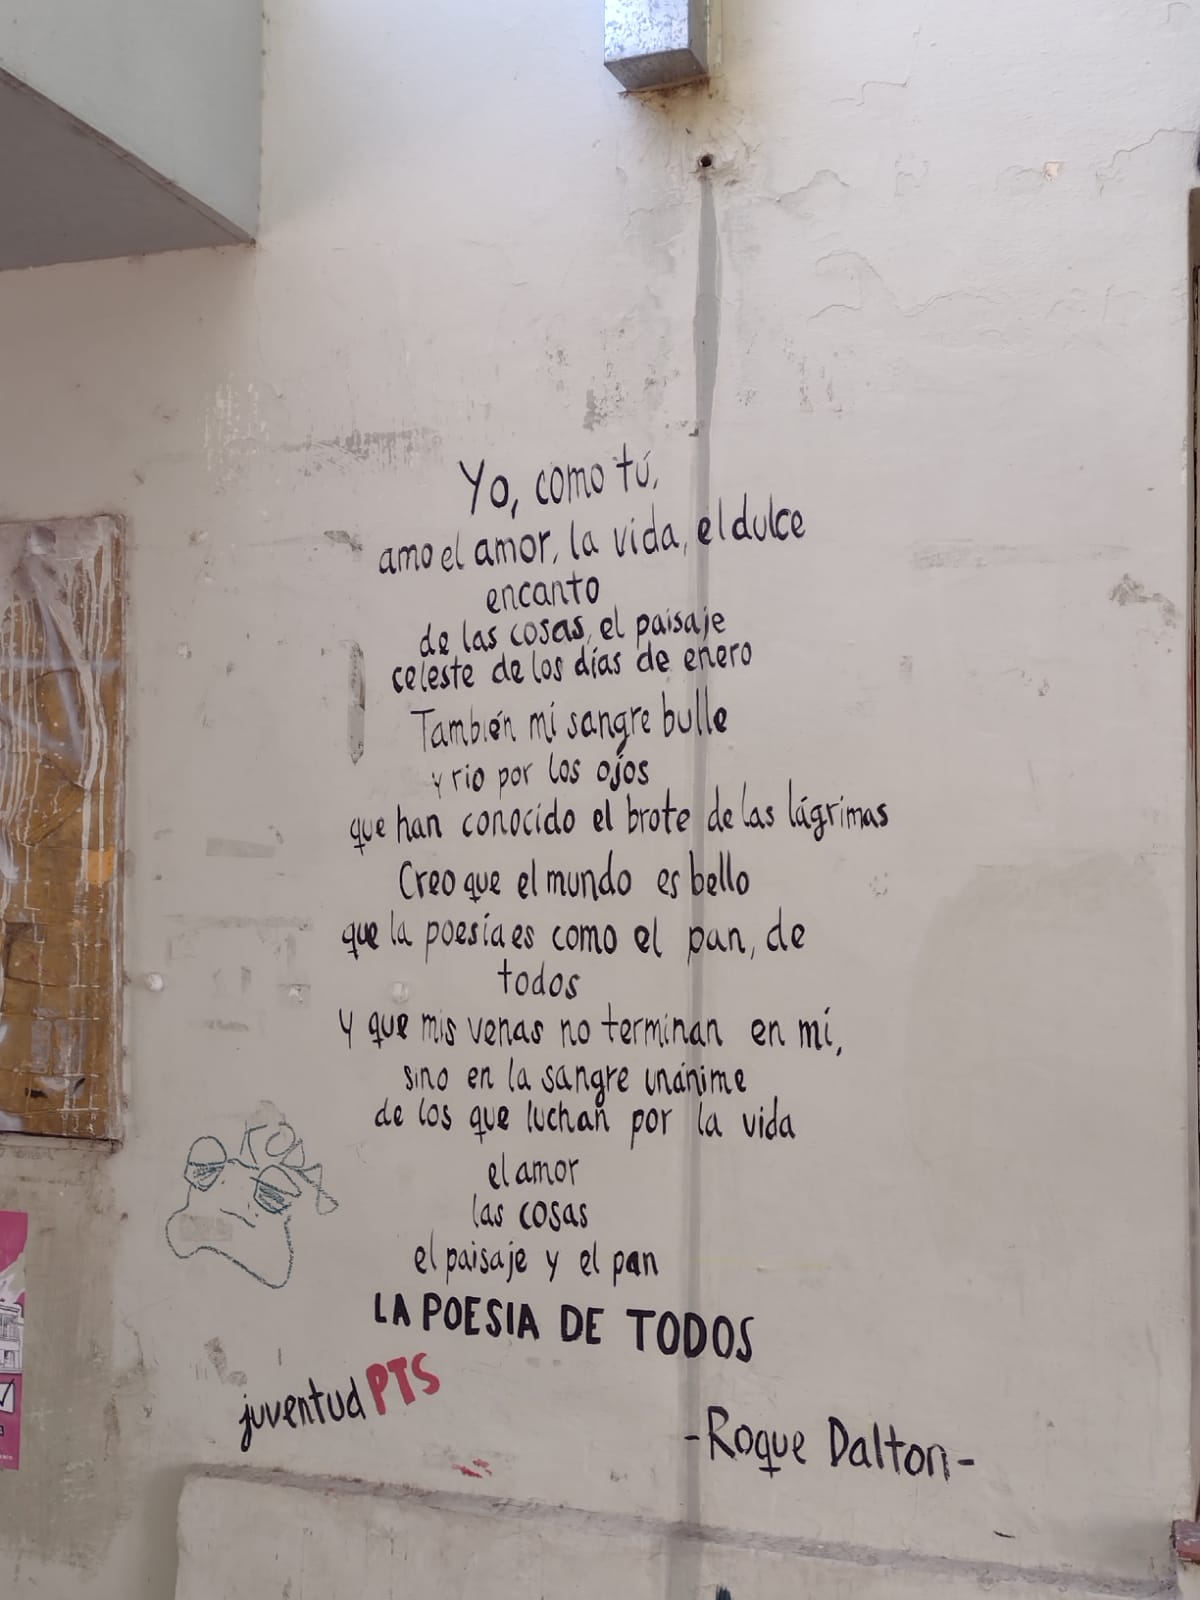 Yo, como tú,
amo el amor, la vida, el dulce
encanto
de las cosas, el paisaje
celeste de los días de enero
También mi sangre bulle
y rio por los ojos
que han conocido el brote de las lágrimas
Creo que el mundo es bello
que la poesía es como el pan, de
todos
Y que mis venas no terminan en mí,
sino en la sangre unánime
de los que luchan por la vida
el amor
las cosas
el paisaje y el pan
LA POESIA DE TODOS
juventud PTS
-Roque Dalton-